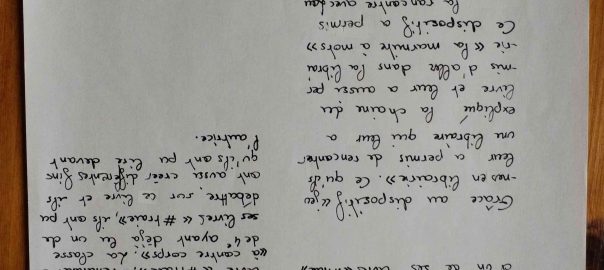 Grâce au dispositif «jeu
-nes en librairie». Ce qu'ils
leur a permis de rencontrer
une libraire qui leur a
expliqué la chaine du
livre et leur a aussi per
-mis d'aller dans la librai
-rie «la marmite à mots»
Ce dispositif a permis
la rencontre avec l'au
«à contre corps». La classe
de 4e ayant déjà lu un de
ses livres «#trahie», ils ont pu
débattre sur ce livre et ils
ont aussi créer différentes fins
qu'ils ont pu lire devant
l'autrice.